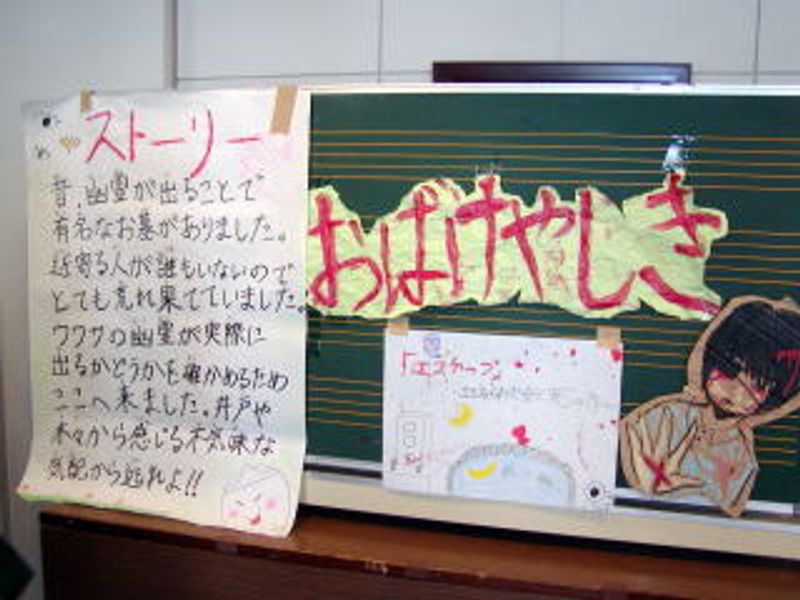 ストーリー
昔、幽霊が出ることで
有名なお墓がありました。
近寄る人が誰もいないので
とても荒れ果てていました。
ウワサの幽霊が実際に
出るかどうかを確かめるため
ここへ来ました。井戸や
木々から感じる不気味な
気配から逃れよ!!
おばけやしき
「エスケープ」